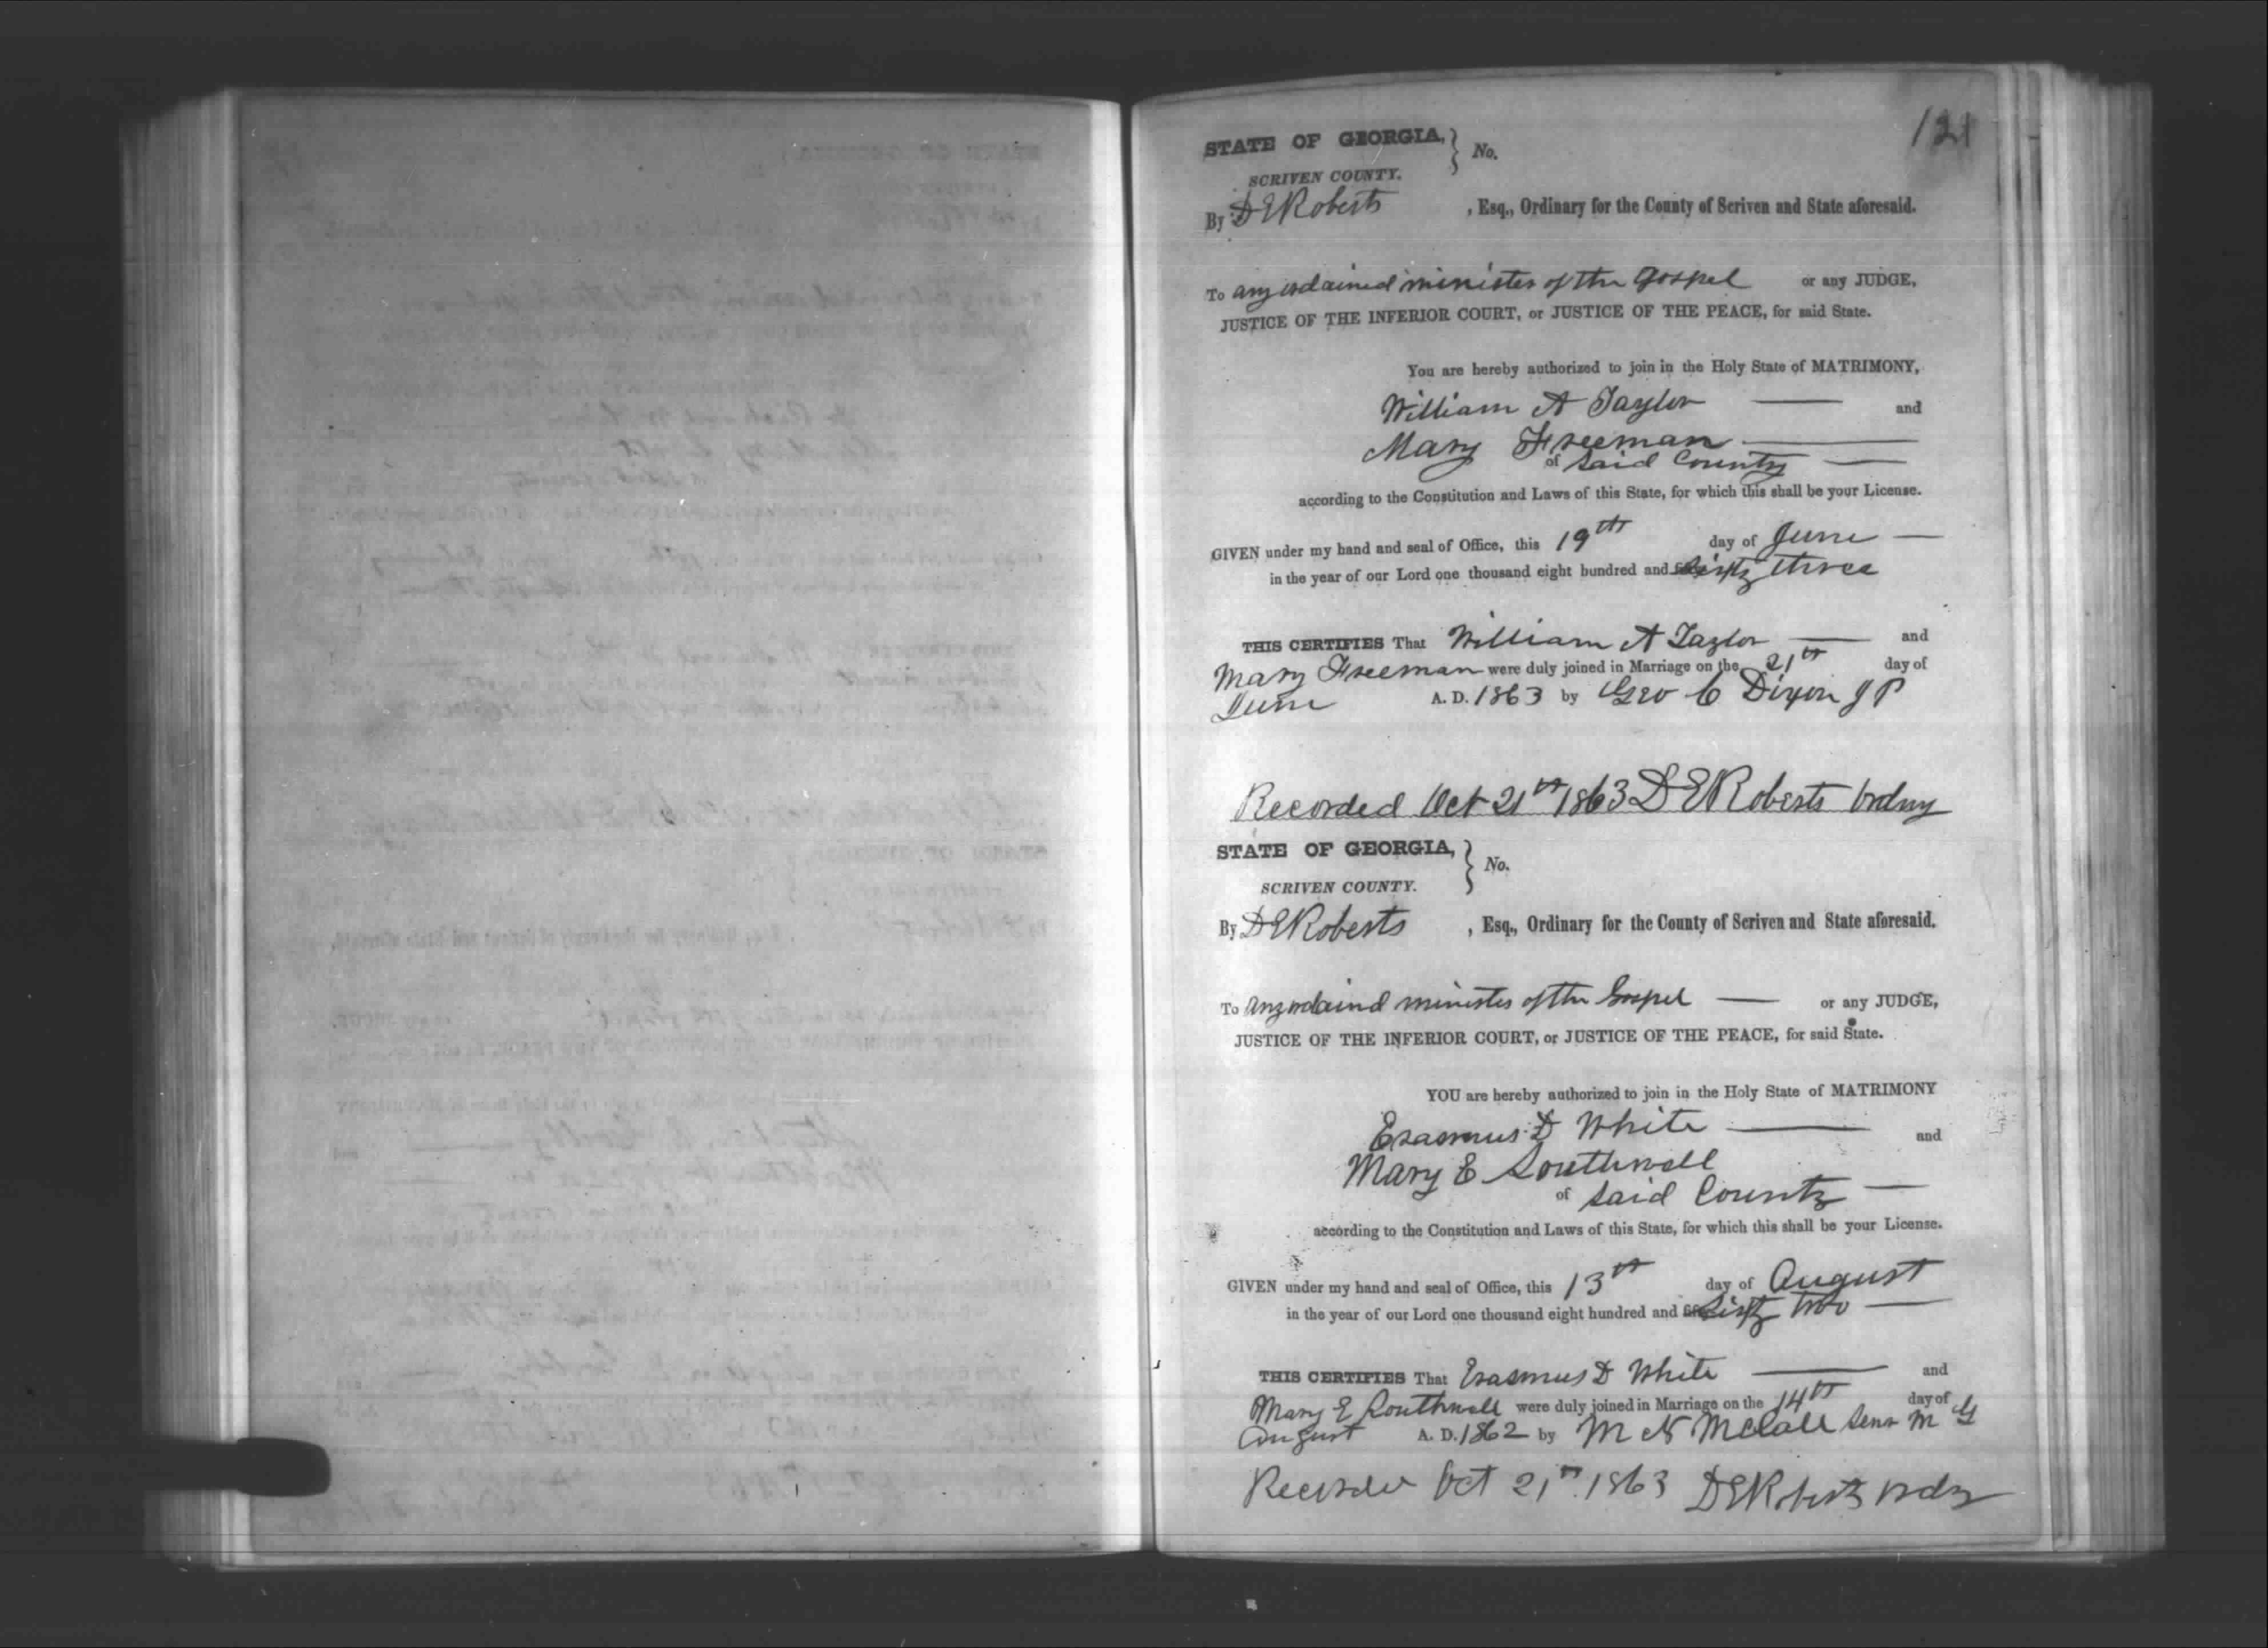 121
STATE OF GEORGIA, } No.
SCRIVEN COUNTY.
By D E Roberts , Esq., Ordinary for the County of Scriven and State aforesaid.
To any ordained minister of the Gospel or any JUDGE,
JUSTICE OF THE INFERIOR COURT, or JUSTICE OF THE PEACE, for said State.
You are hereby authorized to join in the Holy State of MATRIMONY,
William A Taylor and
Mary Freeman
of said County
according to the Constitution and Laws of this State, for which this shall be your License.
GIVEN under my hand and seal of Office, this 19th day of June
in the year of our Lord one thousand eight hundred and sixty three
THIS CERTIFIES That William A Taylor and
Mary Freeman were duly joined in Marriage on the 21th day of
June A. D. 1863 by Geo C Dixon J P
Recorded Oct 21th 1863 D E Roberts Ordny
STATE OF GEORGIA, } No.
SCRIVEN COUNTY.
By D E Roberts , Esq., Ordinary for the County of Scriven and State aforesaid.
To any ordaind minister of the Gospel or any JUDGE,
JUSTICE OF THE INFERIOR COURT, or JUSTICE OF THE PEACE, for said State.
YOU are hereby authorized to join in the Holy State of MATRIMONY
Erasmus D White and
Mary E Southwell
of said County
according to the Constitution and Laws of this State, for which this shall be your License.
GIVEN under my hand and seal of Office, this 13th day of August
in the year of our Lord one thousand eight hundred and sixty two
THIS CERTIFIES That Erasmus D White and
Mary E Southwell were duly joined in Marriage on the 14th day of
August A. D. 1862 by M N McCall Senr M G
Recorded Oct 21th 1863 D E Roberts Ordny